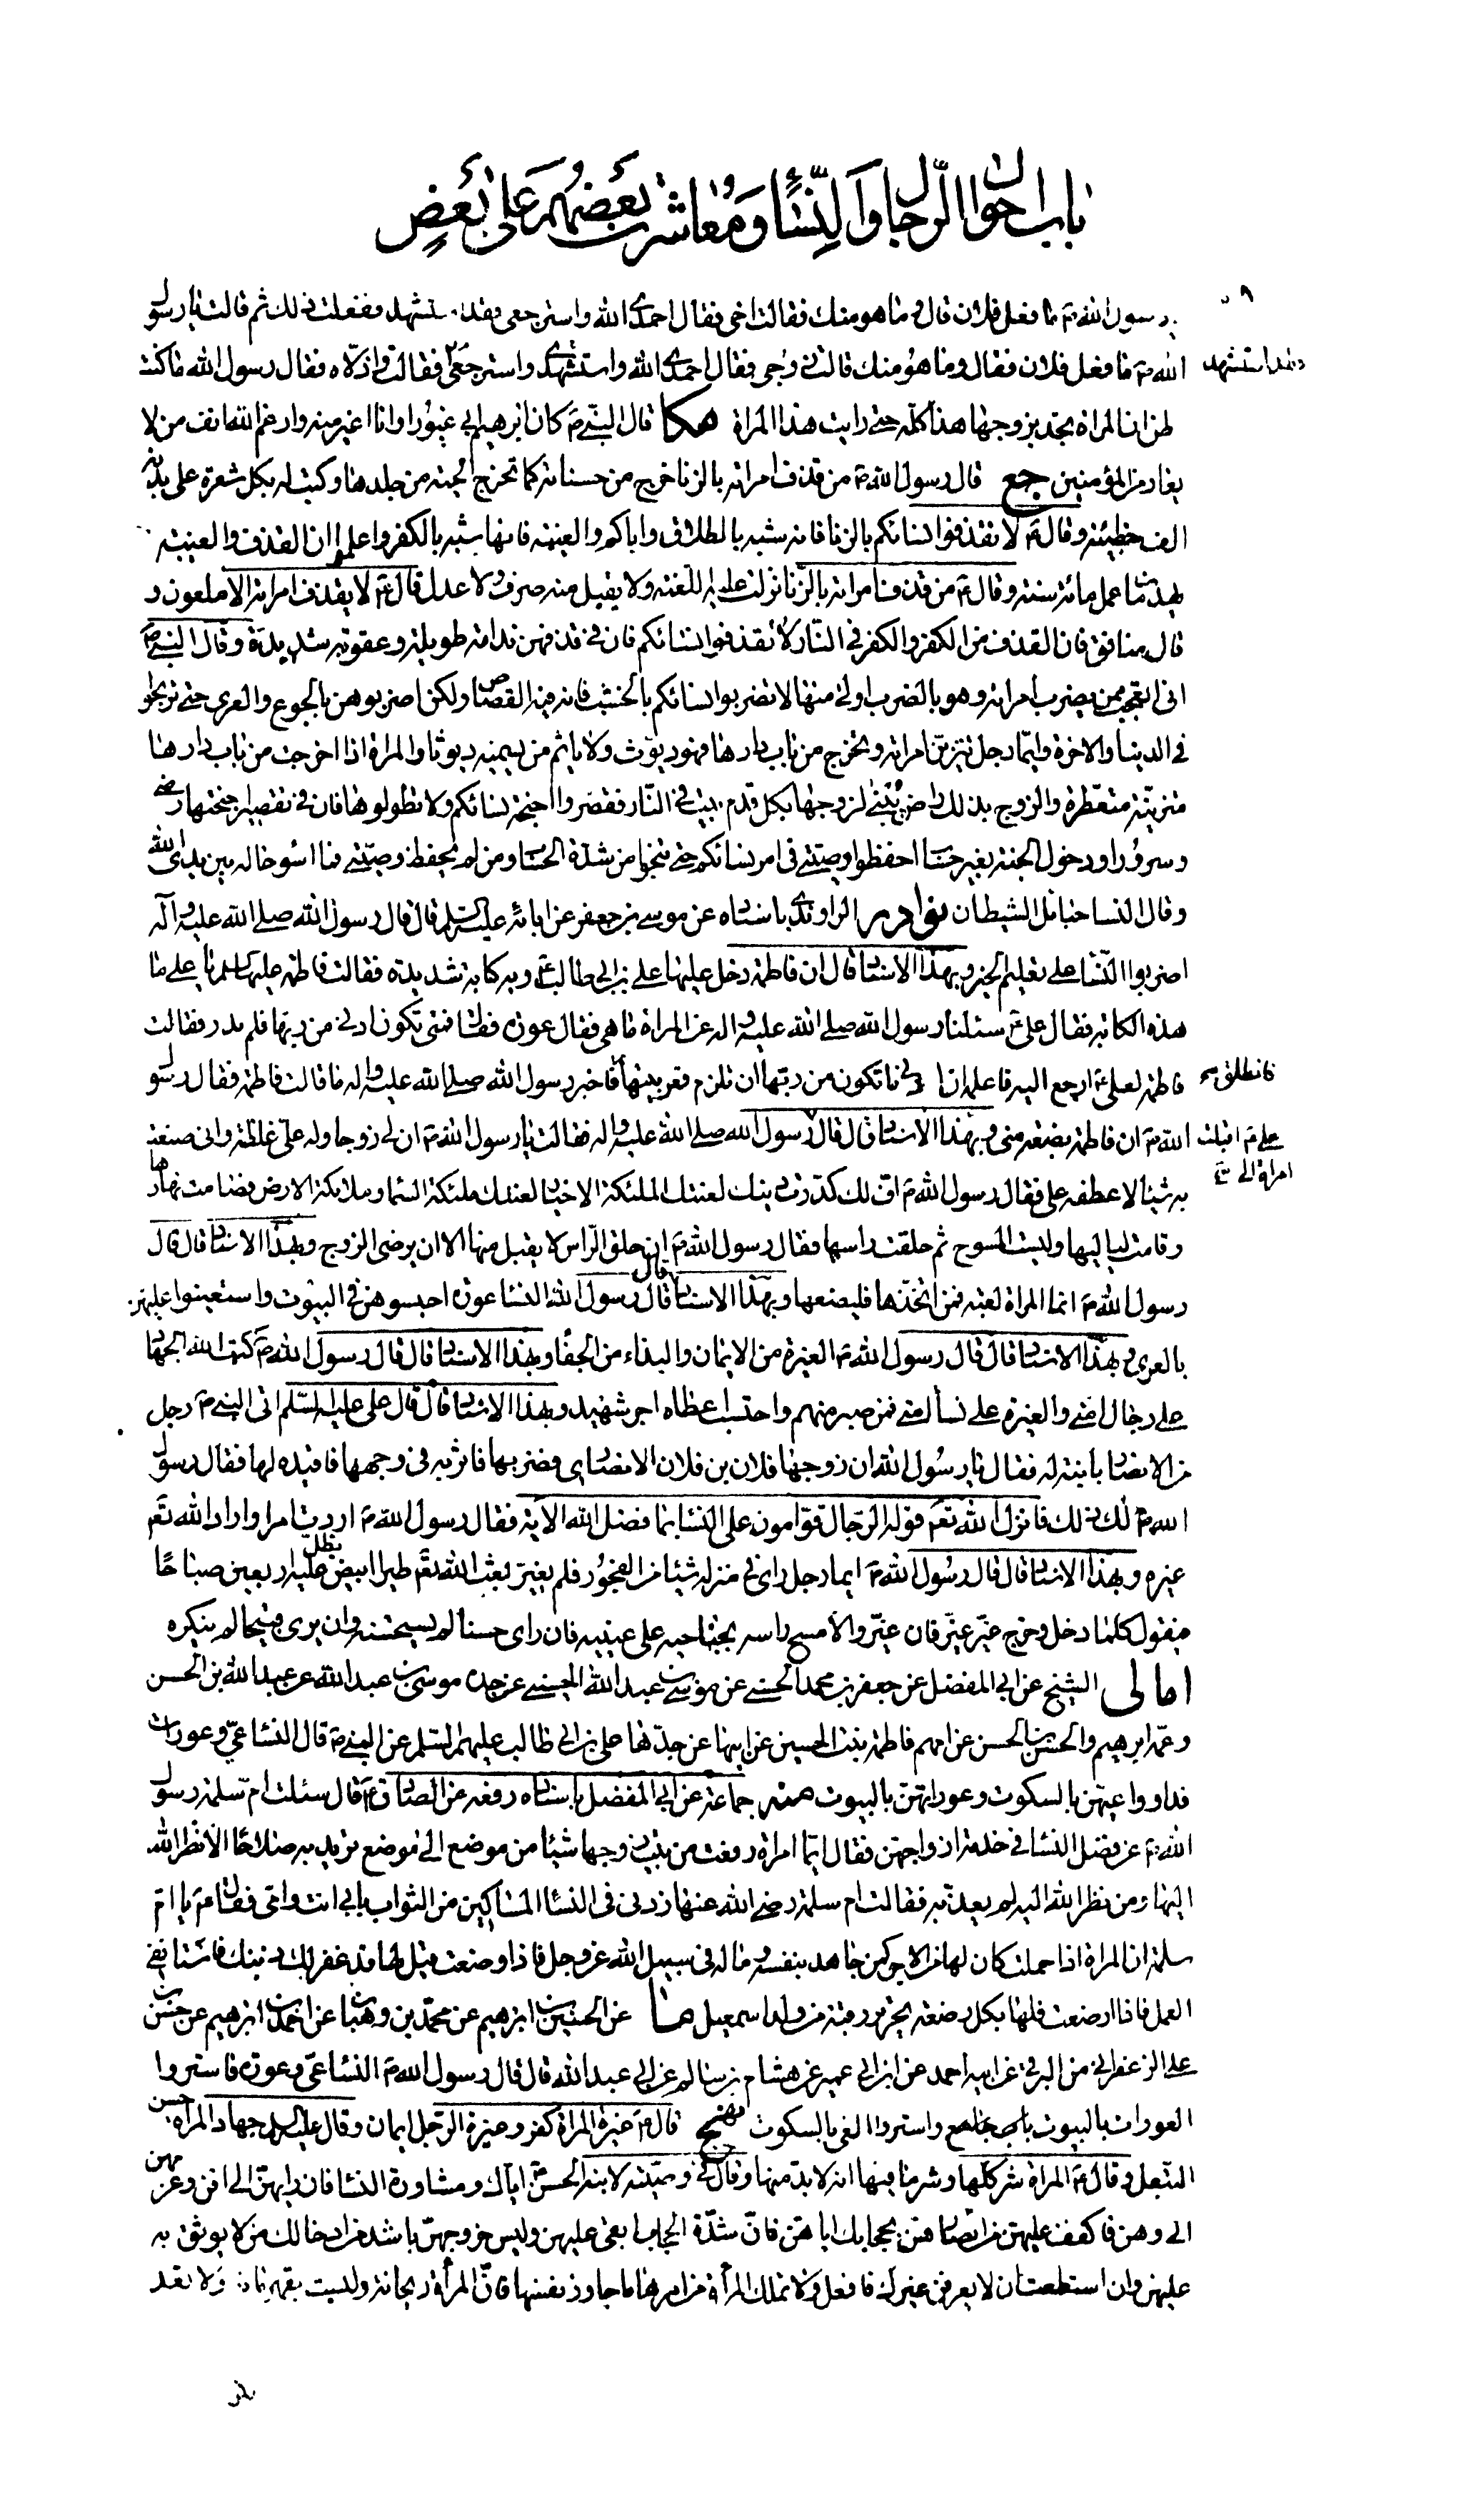 باب احوال الرجال والنساء ومعاشرة بعضهم على بعض
رسول الله ص ما فعل فلان قال وما هو منك فقالت اخى فقال احمدى الله واسترجعى فقد استشهد ففعلت ذلك ثم قالت يا رسول
الله ص ما فعل فلان فقال وما هو منك قالت زوجى فقال احمدى الله واسترجعى فقد استشهد فقالت وا ذلاه فقال رسول الله ما كنت
وقد استشهد
اظن ان المراة تجد بزوجها هذا كله حتى رايت هذه المراة مكا قال النبى ص كان ابرهيم ابى غيورا وانا اغير منه وارغم الله انف من لا
يغار من المؤمنين جع قال رسول الله ص من قذف امراته بالزنا خرج من حسناته كما تخرج الحية من جلدها وكتب له بكل شعرة على بدنه
الف خطيئة وقال ص لا تقذفوا نسائكم بالزنا فانه شبه بالطلاق واياكم والغيبة فانها شبه بالكفر واعلموا ان القذف والغيبة
يهدمان عمل مائة سنة وقال ص من قذف امراته بالزنا نزلت عليه اللعنة ولا يقبل منه صرف ولا عدل قال ع لا يقذف امراته الا ملعون و
قال منافق فان القذف من الكفر والكفر فى النار لا تقذفوا نسائكم فان فى قذفهن ندامة طويلة وعقوبة شديدة وقال النبى ص
انى اتعجب ممن يضرب امراته وهو بالضرب اولى منها لا تضربوا نسائكم بالخشب فانه فيه القصاص ولكن اضربوهن بالجوع والعرى حتى تريحوا
فى الدنيا والاخرة وايما رجل تتزين امراته وتخرج من باب دارها فهو ديوث ولا ياثم من يسميه ديوثا والمراة اذا خرجت من باب دارها
متزينة متعطرة والزوج بذلك راض يبنى لزوجها بكل قدم بيت فى النار فقصروا اجنحة نسائكم ولا تطولوها فان فى تقصير اجنحتها رضى
وسرورا ودخول الجنة بغير حساب احفظوا وصيتى فى امر نسائكم حتى تنجوا من شدة الحساب ومن لم يحفظ وصيتى فما اسوء حاله بين يدى الله
وقال النساء حبائل الشيطان نوادر الراوندى باسناده عن موسى بن جعفر عن ابائه عليه السلم قال قال رسول الله صلى الله عليه واله
اضربوا النساء على تعليم الخير وبهذا الاسناد قال ان فاطمة دخل عليها على بن ابى طالب ع وبه كابة شديدة فقالت فاطمة عليها السلم يا على ما
هذه الكابة فقال على ع سئلنا رسول الله صلى الله عليه واله عن المراة ما هى فقلنا عورة فقال فمتى تكون ادنى من ربها فلم ندر فقالت
فاطمة لعلى ع ارجع اليه فاعلمه ان ادنى ما تكون من ربها ان تلزم قعر بيتها فاخبر رسول الله صلى الله عليه واله ما قالت فاطمة فقال رسول
فانطلق
الله ص ان فاطمة بضعة منى وبهذا الاسناد قال قال رسول الله صلى الله عليه واله فقالت يا رسول الله ص ان لى زوجا وله على غلظة وانى صنعت
على ع اقبلت
امراة الى
به شيئا لاعطفه على فقال رسول الله ص اف لك كدرت دينك لعنتك الملئكة الاخيار لعنتك ملئكة السماء وملائكة الارض فصامت نهارها
وقامت لياليها ولبست المسوح ثم حلقت راسها فقال رسول الله ص ان حلق الراس لا يقبل منها الا ان يرضى الزوج وبهذا الاسناد قال قال
رسول الله ص انما المراة لعبة فمن اتخذها فليصنعها وبهذا الاسناد قال قال رسول الله النساء عورة احبسوهن فى البيوت واستعينوا عليهن
بالعرى وبهذا الاسناد قال قال رسول الله ص الغيرة من الايمان والبذاء من الجفاء وبهذا الاسناد قال قال رسول الله ص كتب الله الجهاد
على رجال امتى والغيرة على نساء امتى فمن صبر منهم واحتسب اعطاه اجر شهيد وبهذا الاسناد قال قال على عليه السلم اتى النبى ص رجل
من الانصار بابنة له فقال يا رسول الله ان زوجها فلان بن فلان الانصارى فضربها فاثر به فى وجهها فاقيده لها فقال رسول
الله ص لك ذلك فانزل الله تعم قوله الرجال قوامون على النساء بما فضل الله الاية فقال رسول الله ص اردت امرا واراد الله تعم
غيره وبهذا الاسناد قال قال رسول الله ص ايما رجل راى فى منزله شيئا من الفجور فلم يغير بعث الله تعم طيرا ابيض يظل عليه اربعين صباحا
فيقول كلما دخل وخرج غير غير فان غير والا مسح راسه بجناحيه على عينيه فان راى حسنا لم يستحسنه وان يرى قبيحا لم ينكره
امالى الشيخ عن ابى المفضل عن جعفر بن محمد الحسنى عن موسى بن عبد الله الحسنى عن جده موسى بن عبد الله عن عبد الله بن الحسن
وعمه ابرهيم والحسن بن الحسن عن امهم فاطمة بنت الحسين عن ابيها عن جدها على بن ابى طالب عليهم السلم عن النبى ص قال النساء عى وعورات
فداووا عيهن بالسكوت وعوراتهن بالبيوت منه جماعة عن ابى المفضل باسناده رفعه عن الصادق ع قال سئلت ام سلمة رسول
الله ص عن فضل النساء فى خدمة ازواجهن فقال ايما امراة رفعت من بيت زوجها شيئا من موضع الى موضع تريد به صلاحا الا نظر الله
اليها ومن نظر الله اليه لم يعذبه فقالت ام سلمة رضى الله عنها زدنى فى النساء المساكين من الثواب بابى انت وامى فقال ص يا ام
سلمة ان المراة اذا حملت كان لها من الاجر كمن جاهد بنفسه وماله فى سبيل الله عز وجل فاذا وضعت قيل لها قد غفر لك ذنبك فاستانفى
العمل فاذا ارضعت فلها بكل رضعة تحرير رقبة من ولد اسمعيل ما عن الحسين بن ابرهيم عن محمد بن وهبان عن احمد بن ابرهيم عن حسن بن
على الزعفرانى عن البرقى عن ابيه احمد عن ابن ابى عمير عن هشام بن سالم عن ابى عبد الله قال قال رسول الله ص النساء عى وعورة فاستروا
العورات بالبيوت واستروا العى بالسكوت نهج قال ع غيرة المراة كفر وغيرة الرجل ايمان وقال عليه السلم جهاد المراة حسن
التبعل وقال ع المراة شر كلها وشر ما فيها انه لا بد منها وقال فى وصيته لابنه الحسن ع اياك ومشاورة النساء فان رايهن الى افن وعزمهن
الى وهن فاكفف عليهن من ابصارهن بحجابك اياهن فان شدة الحجاب ابقى عليهن وليس خروجهن باشد من ادخالك من لا يوثق به
عليهن وان استطعت ان لا يعرفن غيرك فافعل ولا تملك المراة من امرها ما جاوز نفسها فان المراة ريحانة وليست بقهرمانة ولا تعد